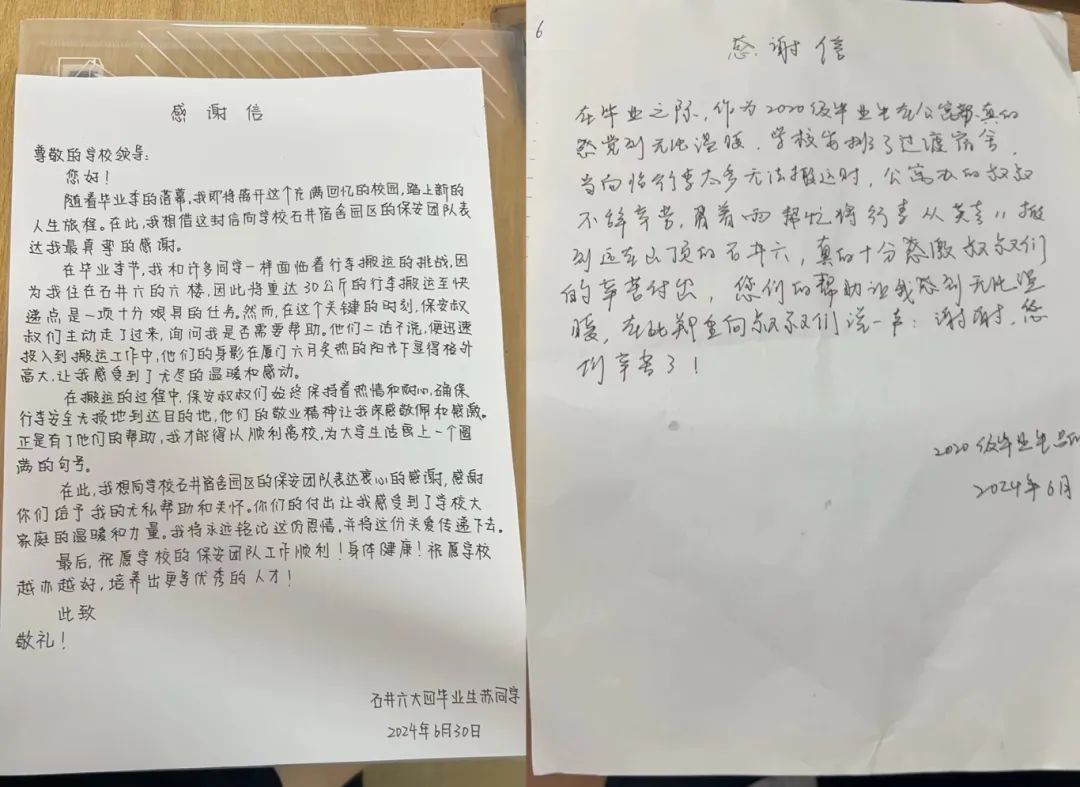 感谢信
尊敬的学校领导：
您好！
随着毕业季的落幕，我即将离开这个充满回忆的校园，踏上新的
人生旅程。在此，我想借这封信向学校石井宿舍园区的保安团队表
达我最真挚的感谢。
在毕业季节，我和许多同学一样面临着行李搬运的挑战，因
为我住在石井六的六楼，因此将重达30公斤的行李搬运至快
递点是一项十分艰具的任务。然而，在这个关键的时刻，保安叔
叔们主动走了过来，询问我是否需要帮助。他们二话不说，便迅速
投入到搬运工作中，他们的身影在厦门六月炙热的阳光下显得格外
高大，让我感受到了无尽的温暖和感动。
在搬运的过程中，保安叔叔们始终保持着热情和耐心，确保
行李安全无损地到达目的地，他们的敬业精神让我深感敬佩和感激。
正是有了他们的帮助，我才能得以顺利离校，为大学生活画上一个圆
满的句号。
在此，我想向学校石井宿舍园区的保安团队表达衷心的感谢，感谢
你们给予我的无私帮助和关怀。你们的付出让我感受到了学校大
家庭的温暖和力量。我将永远铭记这份恩情，并将这份关爱传递下去。
最后，祝愿学校的保安团队工作顺利！身体健康！祝愿学校
越办越好，培养出更多优秀的人才！
此致
敬礼！
石井六大四毕业生苏同学
2024年6月30日
6
感谢信
在毕业之际，作为2020级毕业生在公寓帮真的
感觉到无比温暖，学校安排了过渡宿舍，
当面临行李太多无法搬运时，公寓办的叔叔
不辞辛苦，冒着雨帮忙将行李从芙蓉11搬
到远在山顶的石井六，真的十分感激叔叔们
的辛苦付出，您们的帮助让我感到无比温
暖，在此郑重向叔叔们说一声：谢谢，您
们辛苦了！
2020级毕业生
2024年6月